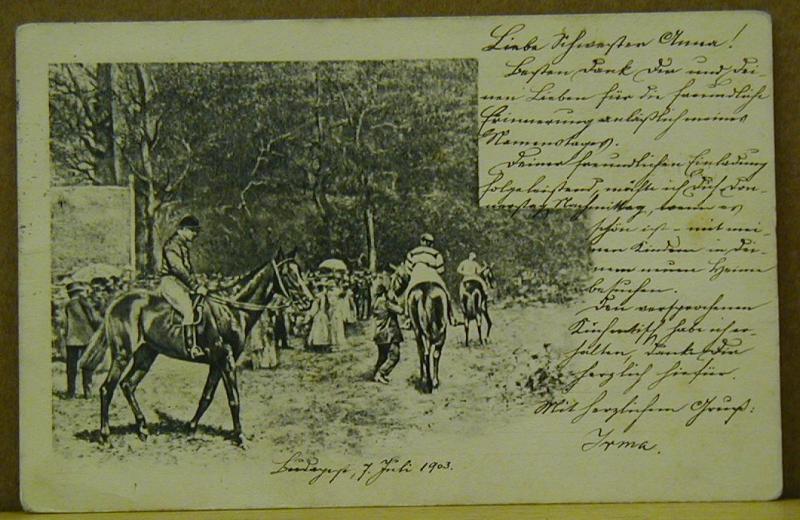 Liebe Schwester Anna!
Besten Dank Dir und Dei-
nen Lieben für die freundliche
Erinnerung anläßlich meines
Namenstages.
Deiner freundlichen Einladung
folgeleistend, möchte ich Dich Don-
nerstag Nachmittag, wenn es
schön ist - mit mei-
nen Kindern in Dei-
nem neuen Heime
besuchen.
Den versprochenen
habe ich er-
halten, danke Dir
herzlich hiefür.
Mit herzlichem Gruß:
Irma.
Budapest, 7. Juli 1903.